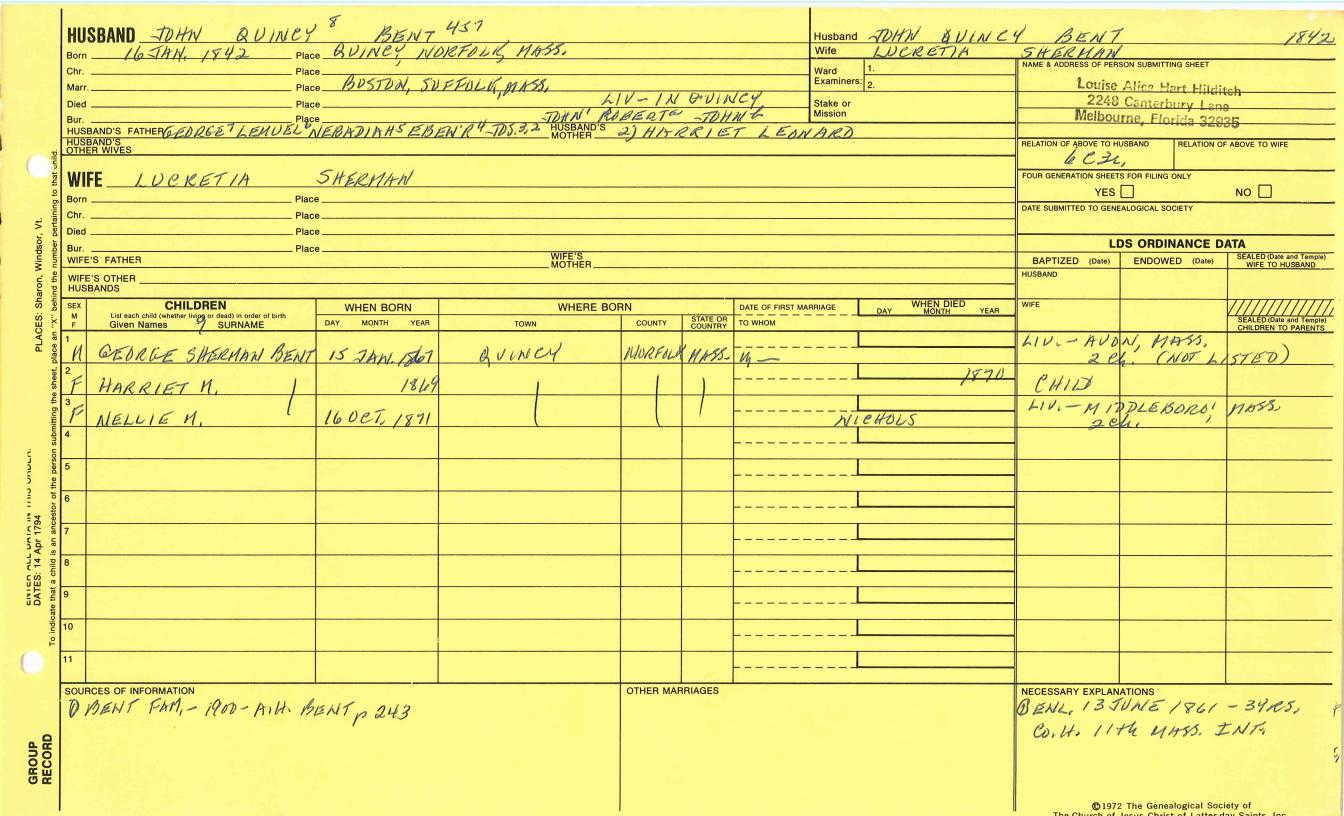 HUSBAND JOHN QUINCY 8 BENT 457
Born 16 JAN. 1842 Place QUINCY, NORFOLK, MASS.
Chr. Place
Marr. Place BOSTON, SUFFOLK, MASS.
Died Place LIV- IN QUINCY
Bur. Place JOHN' ROBERT JOHN
HUSBAND'S FATHER GEORGE 7 LEMUEL 6 NEBADIAH 5 EBEN'R 4 JOS. 3,2 HUSBAND'S MOTHER 2) HARRIET LEONARD
HUSBAND'S OTHER WIVES
Husband JOHN QUINCY BENT 1842
Wife LUCRETIA SHERMAN
Ward Examiners: 1.
2.
Stake or Mission
NAME & ADDRESS OF PERSON SUBMITTING SHEET
Louise Alice Hart Hilditch
2240 Canterbury Lane
Melbourne, Florida 32935
RELATION OF ABOVE TO HUSBAND RELATION OF ABOVE TO WIFE
6C3r.
FOUR GENERATION SHEETS FOR FILING ONLY
YES NO
DATE SUBMITTED TO GENEALOGICAL SOCIETY
WIFE LUCRETIA SHERMAN
Born Place
Chr. Place
Died Place
Bur. Place
WIFE'S FATHER WIFE'S MOTHER
WIFE'S OTHER HUSBANDS
LDS ORDINANCE DATA
BAPTIZED (Date) ENDOWED (Date) SEALED (Date and Temple) WIFE TO HUSBAND
HUSBAND
WIFE
SEALED (Date and Temple) CHILDREN TO PARENTS
SEX M F CHILDREN WHEN BORN WHERE BORN DATE OF FIRST MARRIAGE WHEN DIED
List each child (whether living or dead) in order of birth
Given Names 9 SURNAME DAY MONTH YEAR TOWN COUNTY STATE OR COUNTRY TO WHOM DAY MONTH YEAR
1 M GEORGE SHERMAN BENT 15 JAN. 1867 QUINCY NORFOLK MASS. M— LIV.- AVON, MASS.
2 Ch. (NOT LISTED)
2 F HARRIET M. 1869 1870 CHILD
3 F NELLIE M. 16 OCT. 1871 NICHOLS LIV.- MIDDLEBORO', MASS.
2 Ch.
4
5
6
7
8
9
10
11
SOURCES OF INFORMATION
① BENT FAM.- 1900- A.H. BENT p 243
OTHER MARRIAGES
NECESSARY EXPLANATIONS
① ENL. 13 JUNE 1861 - 3 YRS.
Co. H. 11th MASS. INF.
©1972 The Genealogical Society of
The Church of Jesus Christ of Latter-day Saints, Inc.
GROUP RECORD
ENTER ALL DATA IN THIS ORDER:
DATES: 14 Apr 1794
PLACES: Sharon, Windsor, Vt.
To indicate that a child is an ancestor of the person submitting the sheet, place an "X" behind the number pertaining to that child.